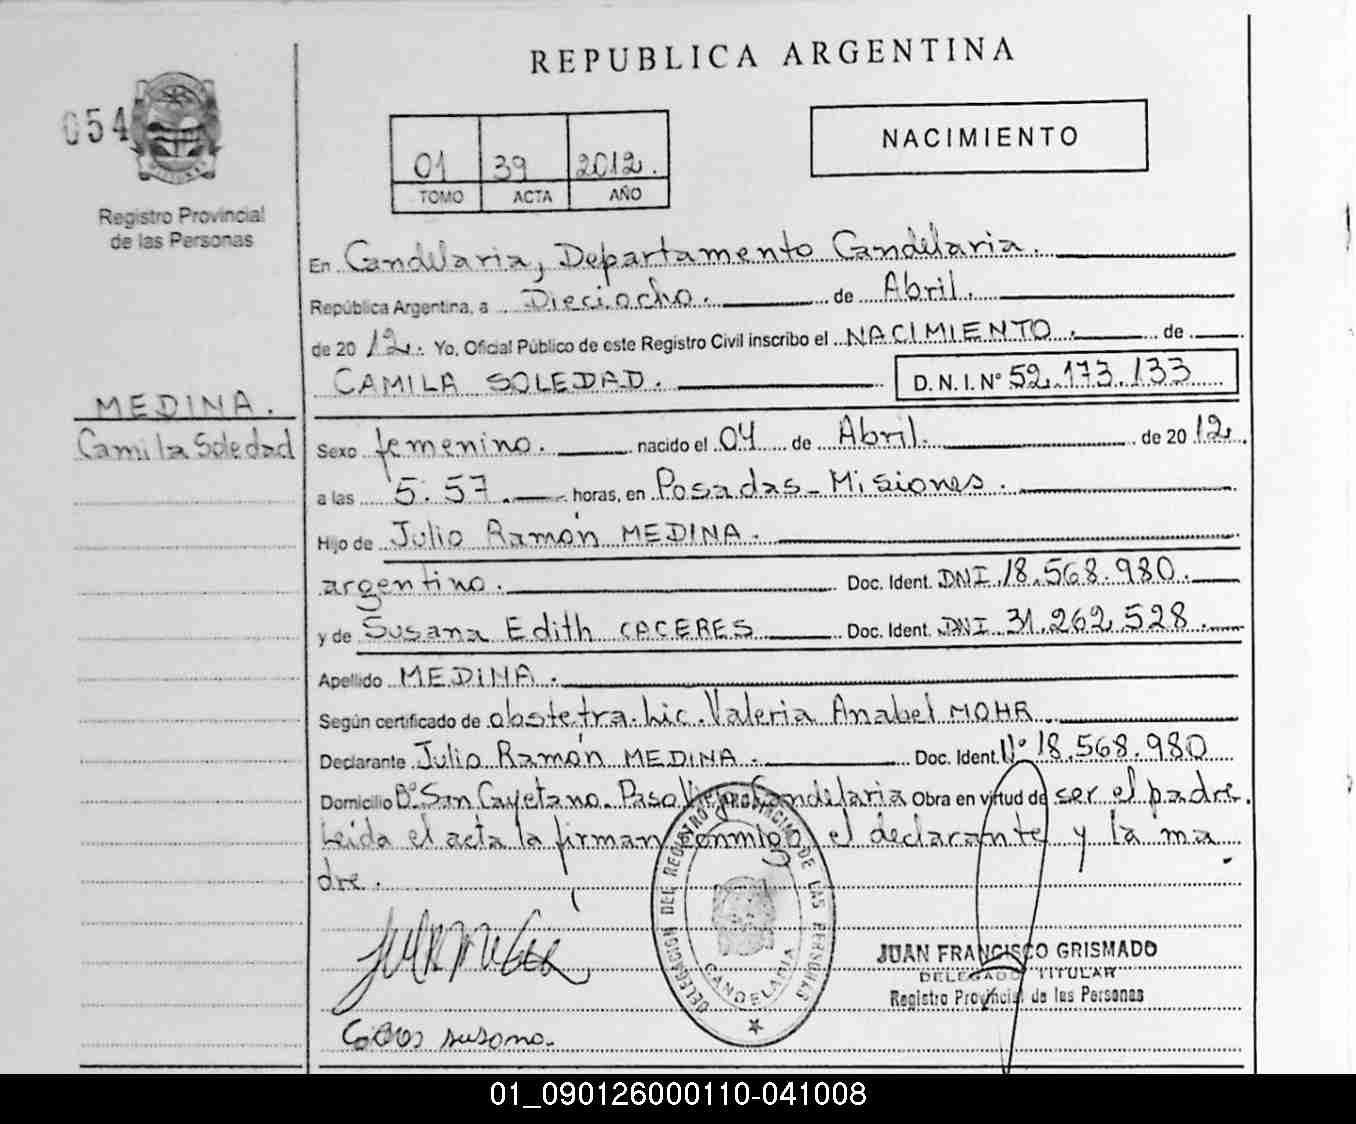 REPUBLICA ARGENTINA
054
01 39 2012.
TOMO ACTA AÑO
NACIMIENTO
Registro Provincial
de las Personas
En Candelaria, Departamento Candelaria.
República Argentina, a Dieciocho. de Abril.
de 2012. Yo, Oficial Público de este Registro Civil inscribo el NACIMIENTO. de
CAMILA SOLEDAD. D.N.I. Nº 52.173.133
MEDINA.
Camila Soledad
Sexo femenino. nacido el 04 de Abril. de 2012.
a las 5:57. horas, en Posadas - Misiones.
Hijo de Julio Ramón MEDINA.
argentino. Doc. Ident. DNI 18.568.980.
y de Susana Edith CACERES Doc. Ident. DNI 31.262.528.
Apellido MEDINA.
Según certificado de obstetra. Lic. Valeria Anabel MOHR
Declarante Julio Ramón MEDINA. Doc. Ident. Nº 18.568.980
Domicilio Bº San Cayetano. Paso Viejo Candelaria Obra en virtud de ser el padre.
Leida el acta la firman conmigo el declarante y la ma
dre.
DELEGACION DEL REGISTRO PROVINCIAL DE LAS PERSONAS
CANDELARIA
JUAN FRANCISCO GRISMADO
DELEGADO TITULAR
Registro Provincial de las Personas
susana.
01_090126000110-041008